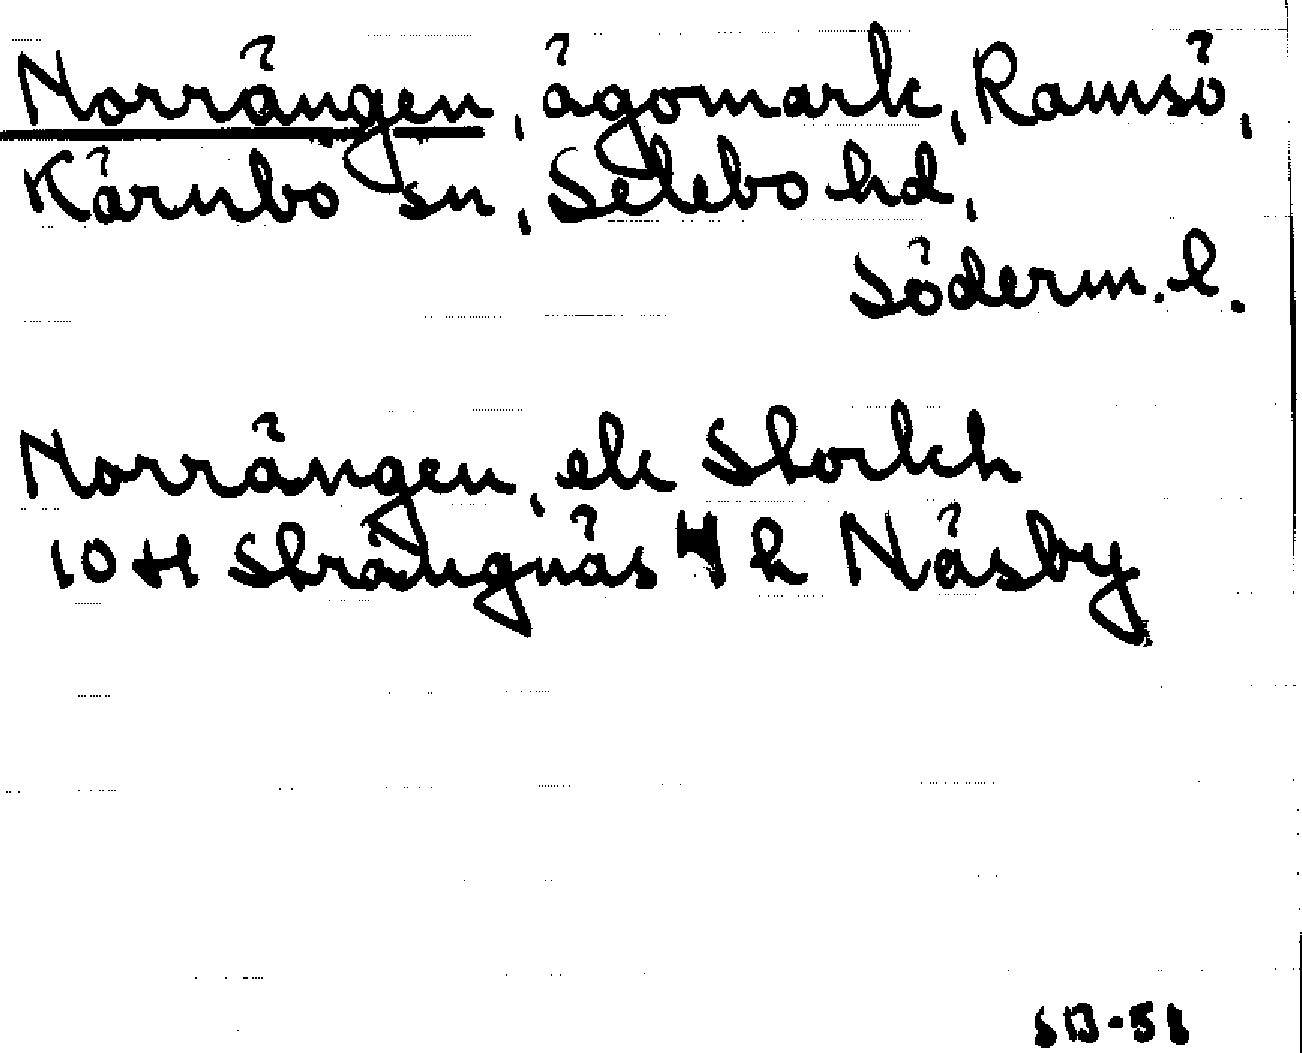 Norrängen, ägomark, Ramsö,
Kärnbo sn, Selebo hd,
Söderm. l.
Norrängen, ek Storkh
10 H Strängnäs 4 h Näsby